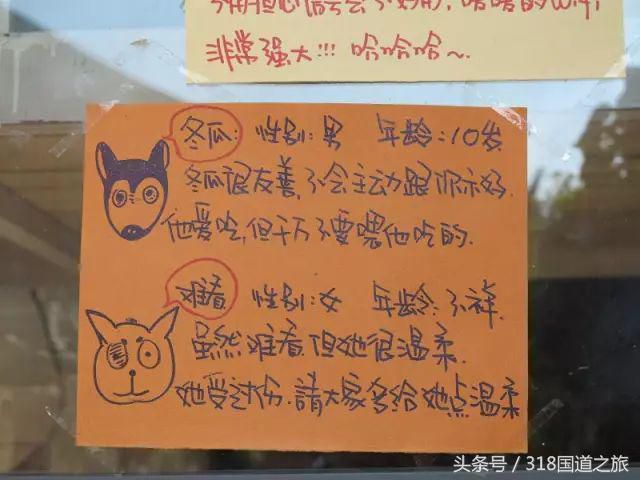 不用担心信号会不好用,
的WiFi
非常强大!!! 哈哈哈~
冬瓜: 性别:男 年龄:10岁
冬瓜很友善,不会主动跟你示好.
他爱吃,但千万不要喂他吃的.
难看 性别:女 年龄:不祥.
虽然难看,但她很温柔.
她受过伤.請大家多给她点温柔
头条号 / 318国道之旅